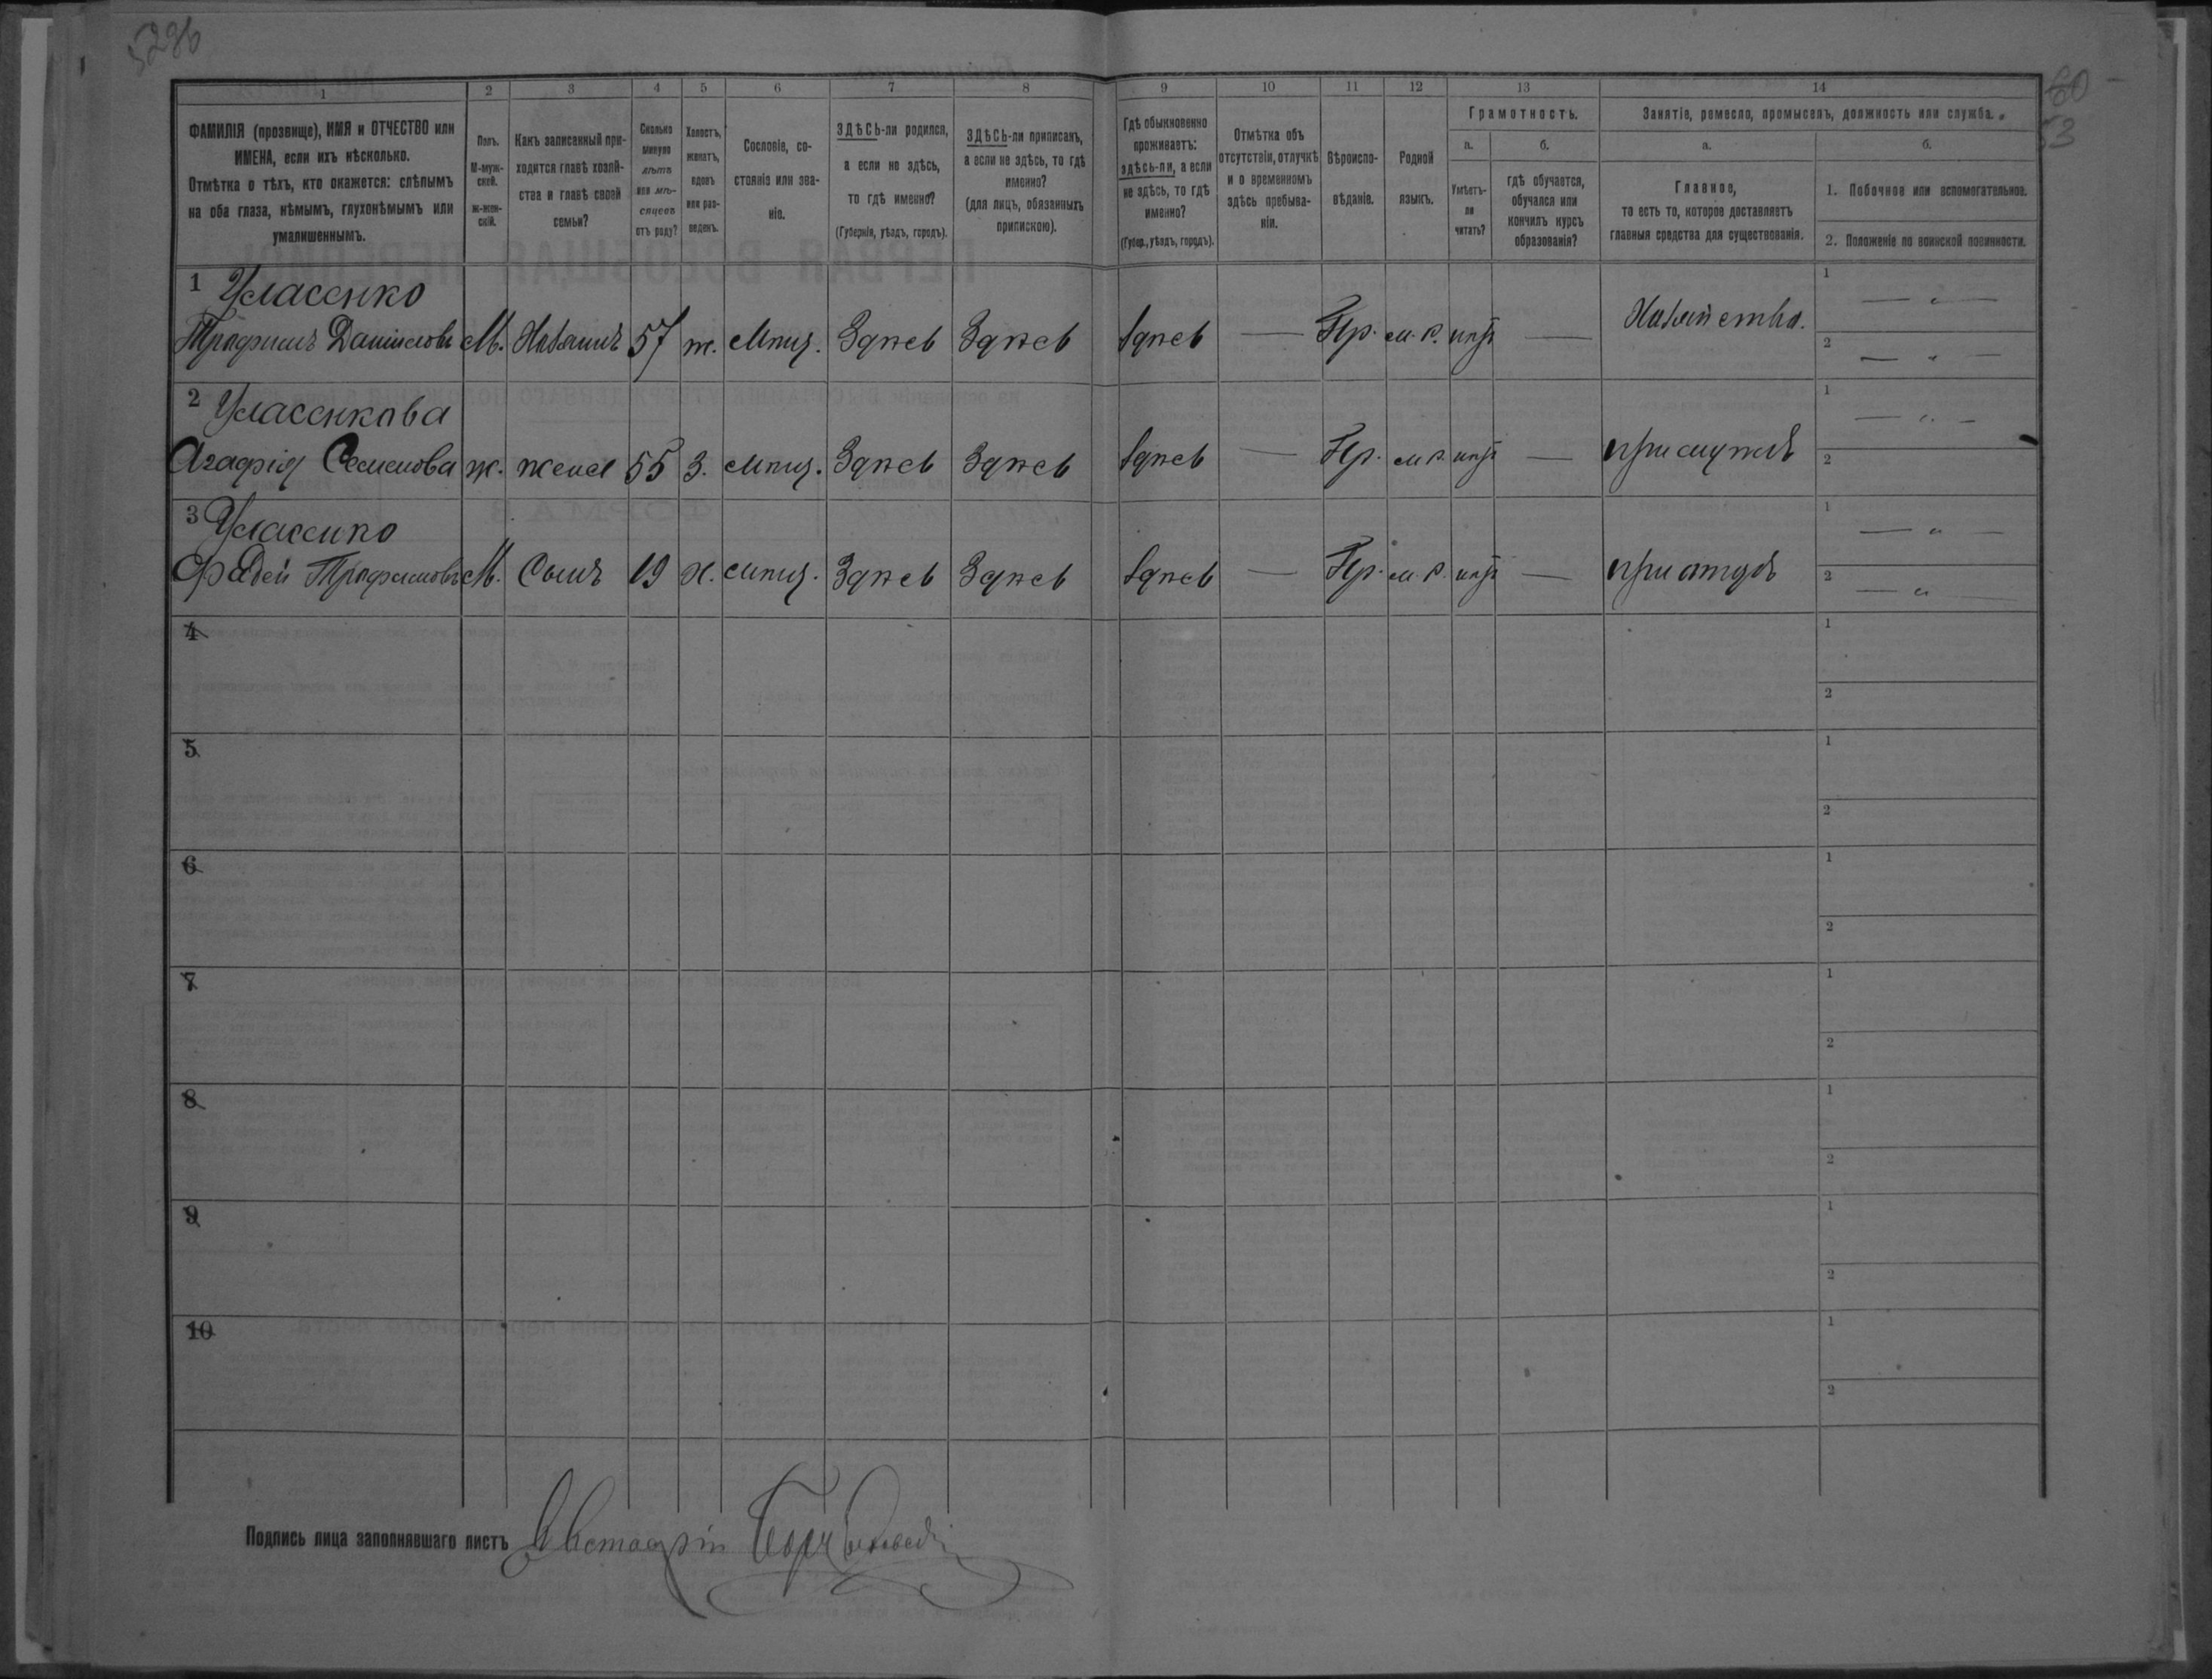 5286
60
53
1 2 3 4 5 6 7 8 9 10 11 12 13 14
ФАМИЛІЯ (прозвище), ИМЯ и ОТЧЕСТВО или
ИМЕНА, если ихъ нѣсколько.
Отмѣтка о тѣхъ, кто окажется: слѣпымъ
на оба глаза, нѣмымъ, глухонѣмымъ или
умалишеннымъ.
Полъ.
М-муж-
ской.
ж-жен-
скій.
Какъ записанный при-
ходится главѣ хозяй-
ства и главѣ своей
семьи?
Сколько
минуло
лѣтъ
или мѣ-
сяцевъ
отъ роду?
Холостъ,
женатъ,
вдовъ
или раз-
веденъ.
Сословіе, со-
стояніе или зва-
ніе.
ЗДѢСЬ-ли родился,
а если не здѣсь,
то гдѣ именно?
(Губернія, уѣздъ, городъ).
ЗДѢСЬ-ли приписанъ,
а если не здѣсь, то гдѣ
именно?
(для лицъ, обязанныхъ
припискою).
Гдѣ обыкновенно
проживаетъ:
здѣсь-ли, а если
не здѣсь, то гдѣ
именно?
(Губер., уѣздъ, городъ).
Отмѣтка объ
отсутствіи, отлучкѣ
и о временномъ
здѣсь пребыва-
ніи.
Вѣроиспо-
вѣданіе.
Родной
языкъ.
Грамотность.
а.
Умѣетъ-
ли
читать?
б.
гдѣ обучается,
обучался или
кончилъ курсъ
образованія?
Занятіе, ремесло, промыселъ, должность или служба.
а.
Главное,
то есть то, которое доставляетъ
главныя средства для существованія.
б.
1. Побочное или вспомогательное.
2. Положеніе по воинской повинности.
1 Уласенко
Трофимъ Даниловъ М. Хозяинъ 57 ж. мѣщ. Здѣсь Здѣсь Здѣсь — Пр. м.р. нѣтъ — Хозяйство. 1 — " — 2 — " —
2 Уласенкова
Агафія Семенова ж. жена 55 З. мѣщ. Здѣсь Здѣсь Здѣсь — Пр. м.р. нѣтъ — при мужѣ 1 — " — 2
3 Уласенко
Фадей Трофимовъ М. Сынъ 19 Х. мѣщ. Здѣсь Здѣсь Здѣсь — Пр. м.р. нѣтъ — при отцѣ 1 — " — 2 — " —
4 1 2
5 1 2
6 1 2
7 1 2
8 1 2
9 1 2
10 1 2
Подпись лица заполнявшаго листъ